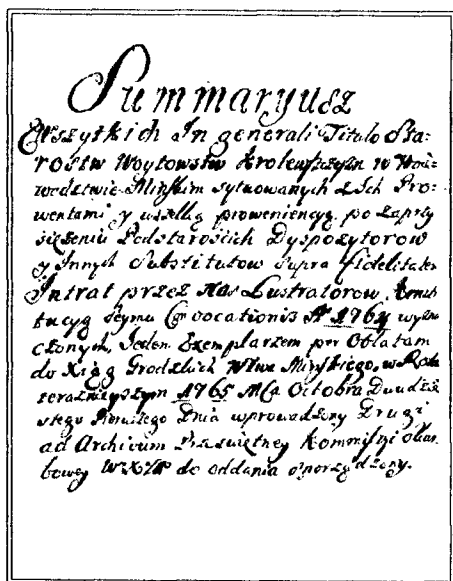 Summaryusz
Wszytkich In generali Titulo Sta-
rostw Woytowstw Krolewszczyzn w Woie-
wodztwie Minskim sytuowanych z Ich Pro-
wentami y wszelką proweniencyą, po zaprzy
siężeniu Podstarościch Dyspozytorow
y Innych Substitutow Supra fidelitatem
Intrat przez Nas Lustratorow, Konsti
tucyą Seymu Convocationis Aº 1764 wyzna
czonych, Jeden Exemplarzem per Oblatam
do Xiąg Grodzkich Wtwa Minskiego, w Roku
teraznieyszym 1765 Mca Octobra Dwudzie
stego Pierwszego Dnia wprowadzony Drugi
ad Archivum Prześwietney Kommissyi Skar
bowey W.X.Lit do oddania sporządzony.